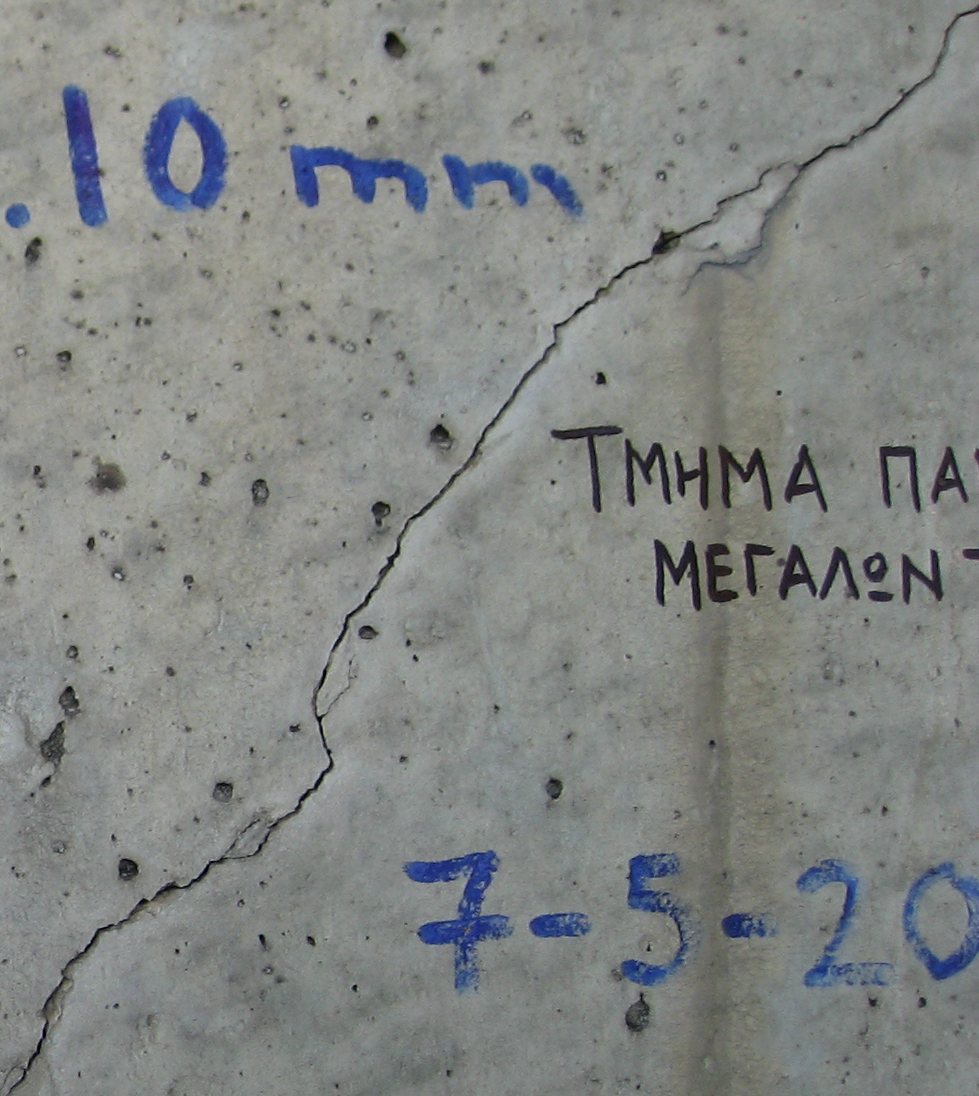 .10 mm
ΤΜΗΜΑ
ΜΕΓΑΛΩΝ
7-5-20